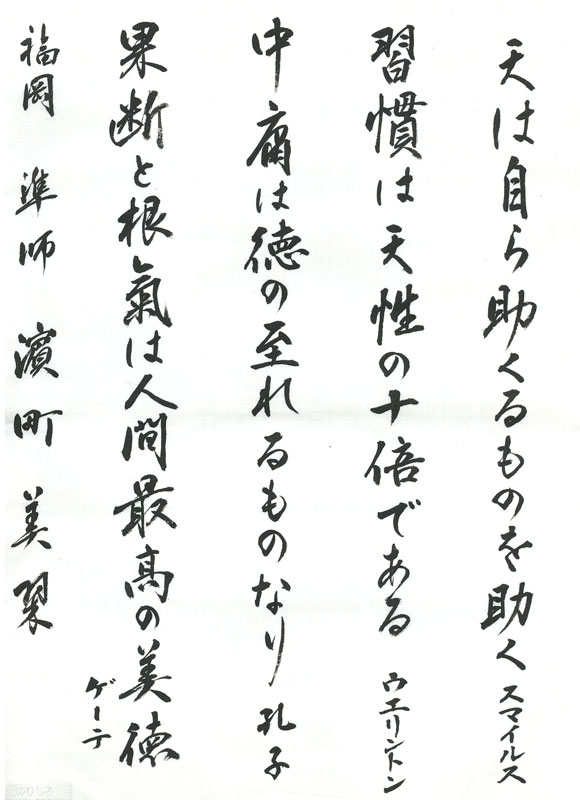 天は自ら助くるものを助く スマイルス
習慣は天性の十倍である ウエリントン
中庸は徳の至れるものなり 孔子
果断と根氣は人間最高の美徳 ゲーテ
福岡 準師 濱町 美翠
のりしろ